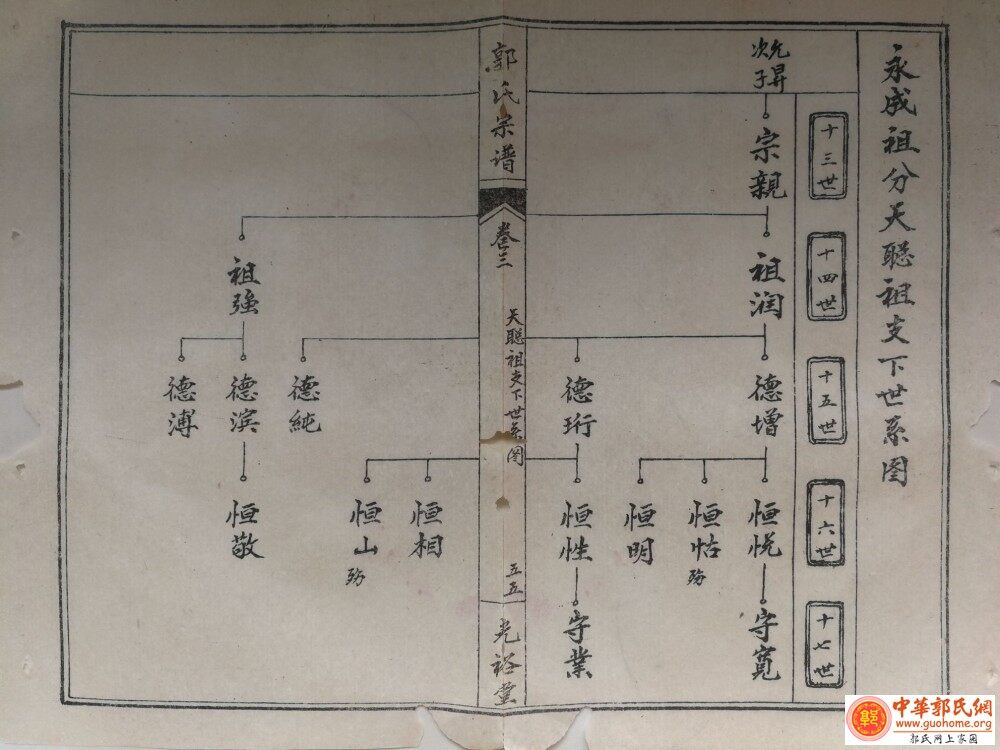 永成祖分天聪祖支下世系图
十三世
十四世
十五世
十六世
十七世
允昇
次子
宗親
祖润
德增
恒悦
守寬
恒怙
殇
恒明
德珩
恒性
守業
郭氏宗谱
卷三
天聪祖支下世系图
五五
光裕堂
恒相
恒山
殇
德純
祖强
德滨
恒敬
德溥
中華郭氏網
www.guohome.org
郭氏网上家园